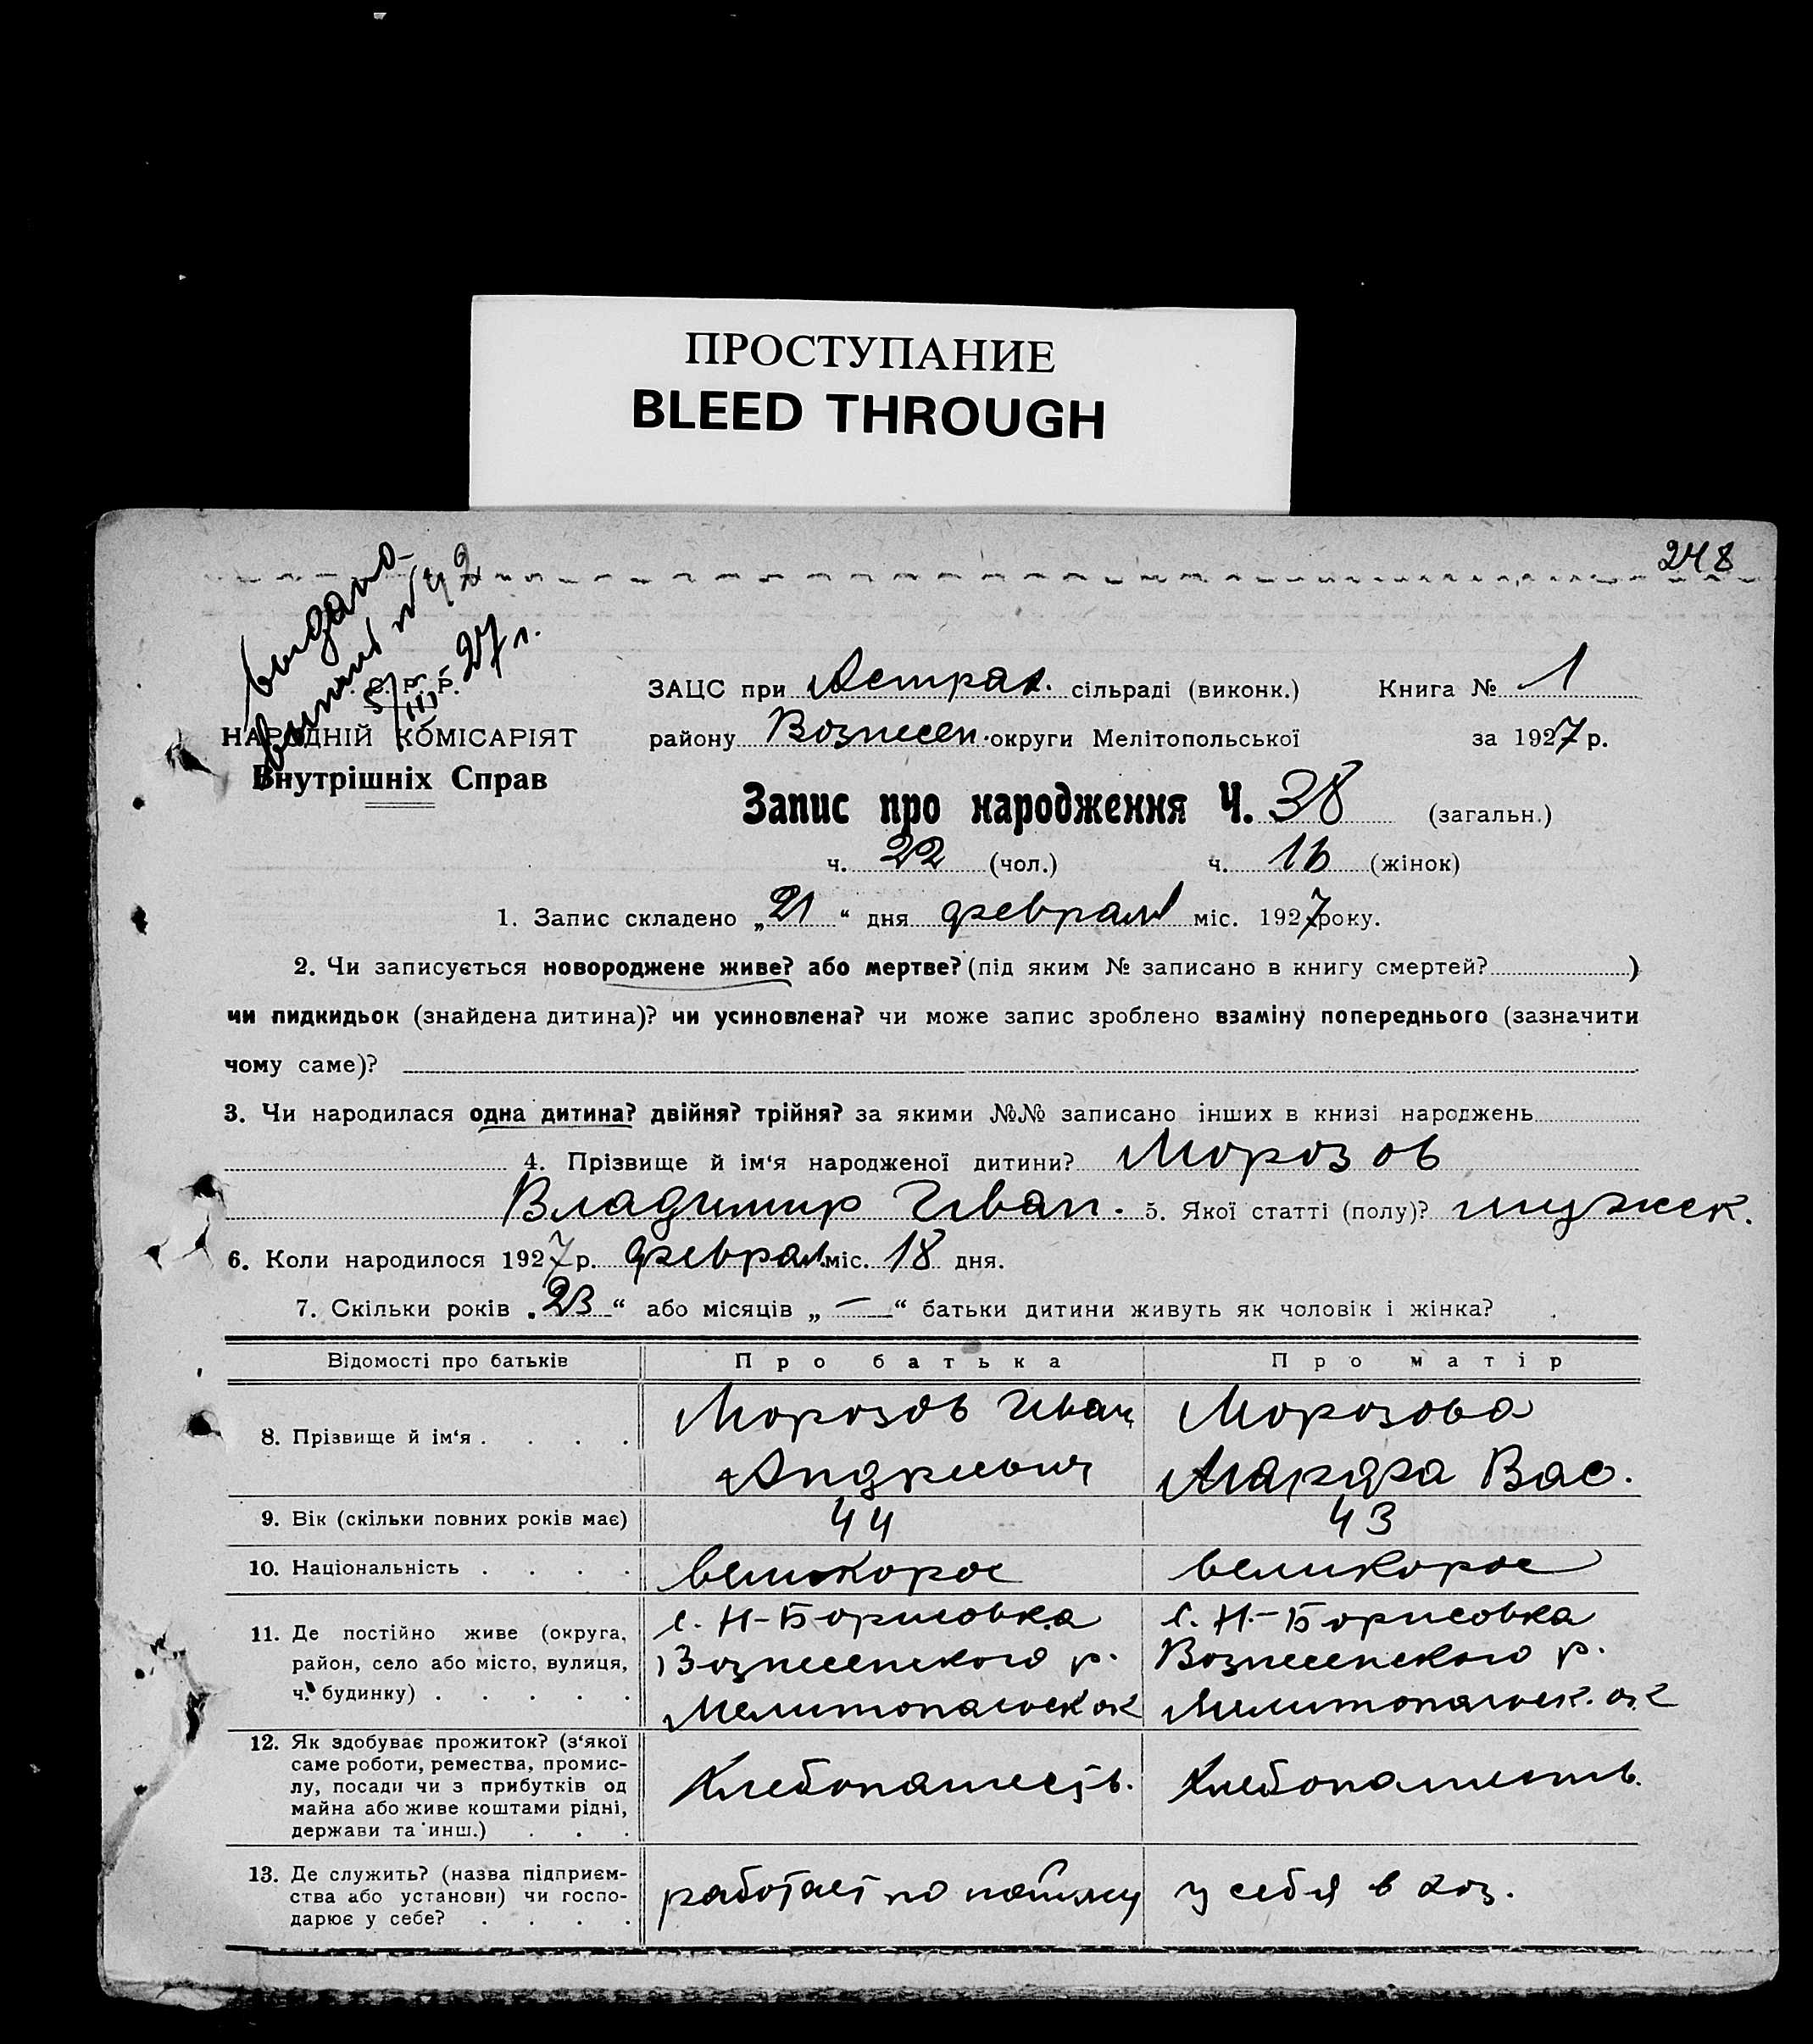 ПРОСТУПАНИЕ
BLEED THROUGH
248
выдано
выпись №42
5/III 27 г.
С. Р. Р.
НАРОДНІЙ КОМІСАРІЯТ
Внутрішніх Справ
ЗАЦС при Астрах. сільраді (виконк.) Книга № 1
району Вознесен. округи Мелітопольської за 1927 р.
Запис про народження Ч. 38 (загальн.)
ч. 22 (чол.) ч. 16 (жінок)
1. Запис складено „21“ дня февраля міс. 1927 року.
2. Чи записується новороджене живе? або мертве? (під яким № записано в книгу смертей? )
чи пидкидьок (знайдена дитина)? чи усиновлена? чи може запис зроблено взаміну попереднього (зазначити
чому саме)?
3. Чи народилася одна дитина? двійня? трійня? за якими №№ записано інших в книзі народжень
4. Прізвище й ім‘я народженої дитини? Морозов
Владимир Иван. 5. Якої статті (полу)? мужск.
6. Коли народилося 1927 р. феврал. міс. 18 дня.
7. Скільки років „23“ або місяців „—“ батьки дитини живуть як чоловік і жінка?
Відомості про батьків Про батька Про матір
8. Прізвище й ім‘я . . . . Морозов Иван Морозова
Андреевич Марфа Вас.
9. Вік (скільки повних років має) 44 43
10. Національність . . . . великорос великорос
11. Де постійно живе (округа, с. Н-Борисовка с. Н.-Борисовка
район, село або місто, вулиця, Вознесенского р. Вознесенского р.
ч. будинку) . . . . . Мелитопольск ок Мелитопольск. ок
12. Як здобуває прожиток? (з‘якої
саме роботи, ремества, промис-
лу, посади чи з прибутків од Хлебопашеств. Хлебопашеств.
майна або живе коштами рідні,
держави та инш.) . . .
13. Де служить? (назва підприєм-
ства або установи) чи госпо- работает по найму у себя в хоз.
дарює у себе? . . . .